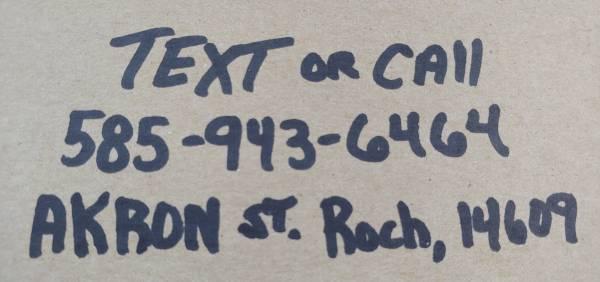 TEXT OR CAll
585-943-6464
AKRON ST. Roch, 14609